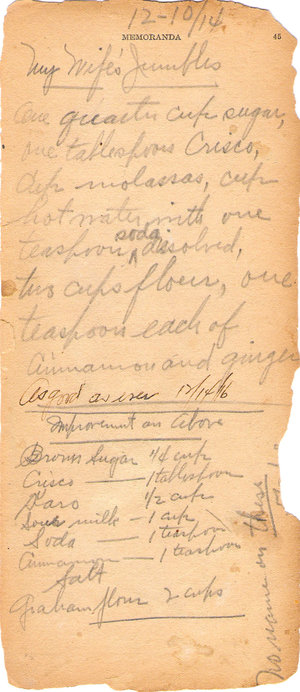 12-10/14
MEMORANDA 45
My Wife's Jumbles
One quarter cup sugar,
one tablespoon Crisco,
cup molassas, cup
hot water with one
teaspoon soda disolved,
two cups flour, one
teaspoon each of
Cinnamon and ginger
As good as ever 12/14/16
Improvement on Above
Brown Sugar 1/4 cup
Crisco — 1 tablespoon
Karo 1/2 cup
Sour milk - 1 cup
Soda — 1 teaspoon
Cinnamon — 1 teaspoon
Salt
Graham flour 2 cups
No name on these